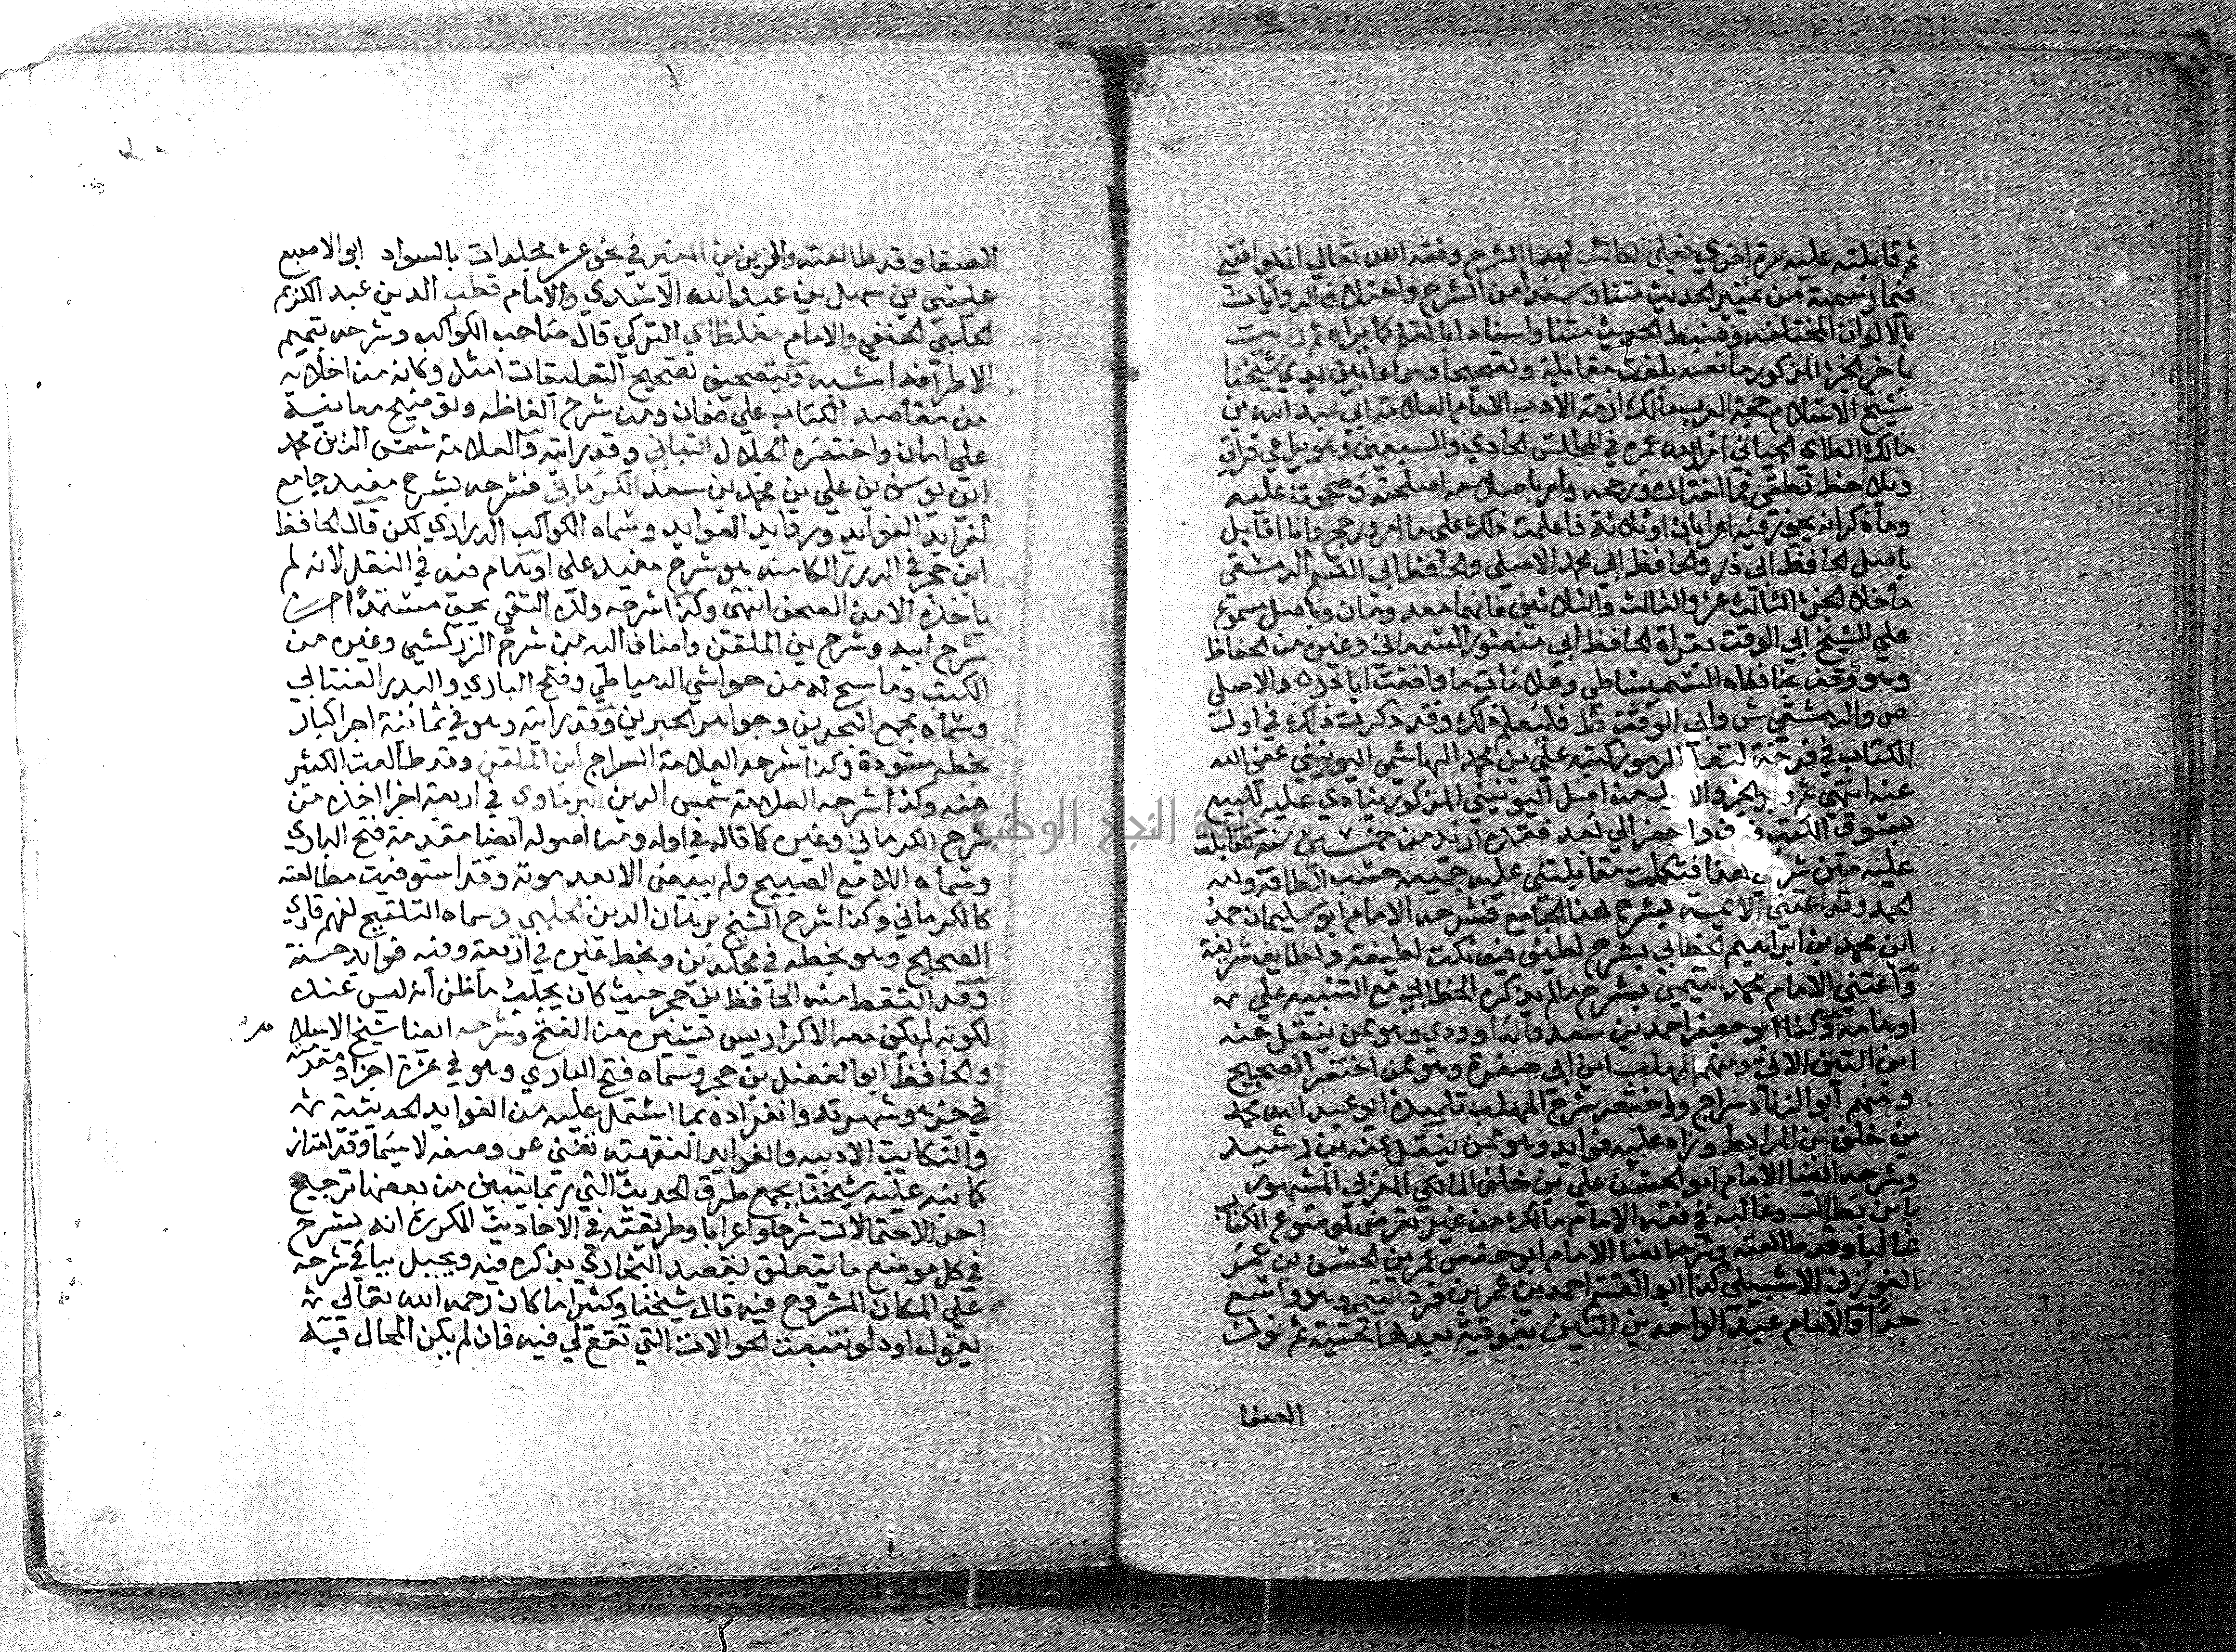 ثم قابلته عليه مرة اخري فعلى الكاتب لهذا الشرح وفقه الله تعالي ان يوافقني
فيما رسمته من تمييز الحديث متنا وسندا من الشرح واختلاف الروايات
بالالوان المختلفه وضبط الحديث متنا واسنادا بالقلم كما يراه ثم رايت
باخر الجزء المذكور ما نصه بلغت مقابلة وتصحيحا وسماعا بين يدي شيخنا
شيخ الاسلام حجة العرب مالك ازمة الادب الامام العلامة ابي عبد الله بن
مالك الطاي الجياني امد الله عمره في المجلس الحادي والسبعين وهو يراعي قراتي
ويلاحظ نطقي فما اختاره ورجحه وامر باصلاحه اصلحته وصححت عليه
وما ذكر انه يجوز فيه اعرابان او ثلاثة فاعلمت ذلك على ما امر ورجح وانا اقابل
باصل الحافظ ابي ذر والحافظ ابي محمد الاصيلي والحافظ ابي القسم الدمشقي
ما خلا الجزء الثالث عشر والثالث والثلاثين فانهما معدومان وباصل مسموع
علي الشيخ ابي الوقت بقراة الحافظ ابي منصور السمعاني وغيره من الحفاظ
وهو وقف بخانكاه السميساطي وعلامات ما وافقت ابا ذر ه والاصيلي
ص والدمشقي ش وابي الوقت ظ فليعلم ذلك وقد ذكرت ذلك في اول
الكتاب في فرخة لتعلم الرموز كتبه علي بن محمد الهاشمي اليونيني عفى الله
عنه انتهي ثم وجد الجزء الاول من اصل اليونيني المذكور ينادي عليه للبيع
بسوق الكتب فعرف واحضر الي بعد فقده ازيد من خمسين سنة فقابلت
عليه متن شرحي هذا فكملت مقابلتي عليه جميعه حسب الطاقة ولله
الحمد وقد اعتني الايمة بشرح هذا الجامع فشرحه الامام ابو سليمان حمد
ابن محمد بن ابراهيم الخطابي بشرح لطيف فيه نكت لطيفة ولطايف شريفة
واعتني الامام محمد التيمي بشرح ما لم يذكره الخطابي مع التنبيه علي
اوهامه وكذا ابو جعفر احمد بن سعيد الداوودي وهو ممن ينقل عنه
ابن التين الاتي ومنهم المهلب ابن ابي صفرة وهو ممن اختصر الصحيح
ومنهم ابو الزناد سراج واختصر شرح المهلب تلميذه ابو عبيد الله محمد
بن خلف بن المرابط وزاد عليه فوايد وهو ممن ينقل عنه بن رشيد
وشرحه ايضا الامام ابو الحسن علي بن خلف المالكي المغربي المشهور
بابن بطال وغالبه في فقه الامام مالك من غير تعرض لموضوع الكتاب
غالبا وقد طالعته وشرحه ايضا الامام ابو حفص عمر بن الحسن بن عمر
الفوزني الاشبيلي وكذا ابو القسم احمد بن عمر بن فرد التيمي وهو واسع
جدا والامام عبد الواحد بن التين بفوقية بعدها تحتية ثم نون
الصفا
الصفا وقد طالعته والزين بن المنير في نحو عشر مجلدات بالسواد ابو الاصبع
عيسي بن سهل بن عبد الله الاسدي والامام قطب الدين عبد الكريم
الحلبي الحنفي والامام مغلطاي التركي قال صاحب الكواكب وشرحه بتتميم
الاطراف اشبه وبتصحيف تصحيح التعليقات امثل وكانه من اخلايه
من مقاصد الكتاب علي ضمان ومن شرح الفاظه وتوضيح معانيه
علي امان واختصره الجلال التباني وقد رايته والعلامة شمس الدين محمد
ابن يوسف بن علي بن محمد بن سعيد الكرماني فشرحه بشرح مفيد جامع
لفرايد الفوايد وزوايد العوايد وسماه الكواكب الدراري لكن قال الحافظ
ابن حجر في الدرر الكامنه هو شرح مفيد علي اوهام فيه في النقل لانه لم
ياخذه الا من الصحف انتهى وكذا شرحه ولده التقي يحي مستمدا من
شرح ابيه وشرح بن الملقن واضاف اليه من شرح الزركشي وغيره من
الكتب وما سنح له من حواشي الدمياطي وفتح الباري والبدر العنتابي
وسماه بمجمع البحرين وجواهر الحبرين وقد رايته وهو في ثمانية اجزا كبار
بخطه مسودة وكذا شرحه العلامة السراج ابن الملقن وقد طالعت الكثير
منه وكذا شرحه العلامة شمس الدين البرماوي في اربعة اجزا اخذه من
شرح الكرماني وغيره كما قاله في اوله ومن اصوله ايضا مقدمة فتح الباري
وسماه اللامع الصبيح ولم يبيض الا بعد موته وقد استوفيت مطالعته
كالكرماني وكذا شرح الشيخ برهان الدين الحلبي وسماه التلقيح لفهم قاري
الصحيح وهو بخطه في مجلدين وبخط غيره في اربعة وفيه فوايد حسنة
وقد التقط منه الحافظ بن حجر حيث كان بحلب ما ظن انه ليس عنده
لكونه لم يكن معه الا كراريس يسيره من الفتح وشرحه ايضا شيخ الاسلام
والحافظ ابو الفضل بن حجر وسماه فتح الباري وهو في عشرة اجزا ومقدمته
في جزء وشهرته وانفراده بما اشتمل عليه من الفوايد الحديثية
والنكايت الادبيه والفرايد الفقهيه تغني عن وصفه لا سيما وقد امتاز
كما نبه عليه شيخنا بجمع طرق الحديث التي ربما يتبين من بعضها ترجيح
احد الاحتمالات شرحا واعرابا وطريقته في الاحاديث المكررة انه يشرح
في كل موضع ما يتعلق بقصد البخاري يذكره فيه ويحيل بباقي شرحه
علي المكان المشروح فيه قال شيخنا وكثيرا ما كان رحمه الله تعالي
يقول اود لو تتبعت الحوالات التي تقع لي فيه فان لم يكن المحال فيه
جامعة النجاح الوطنية